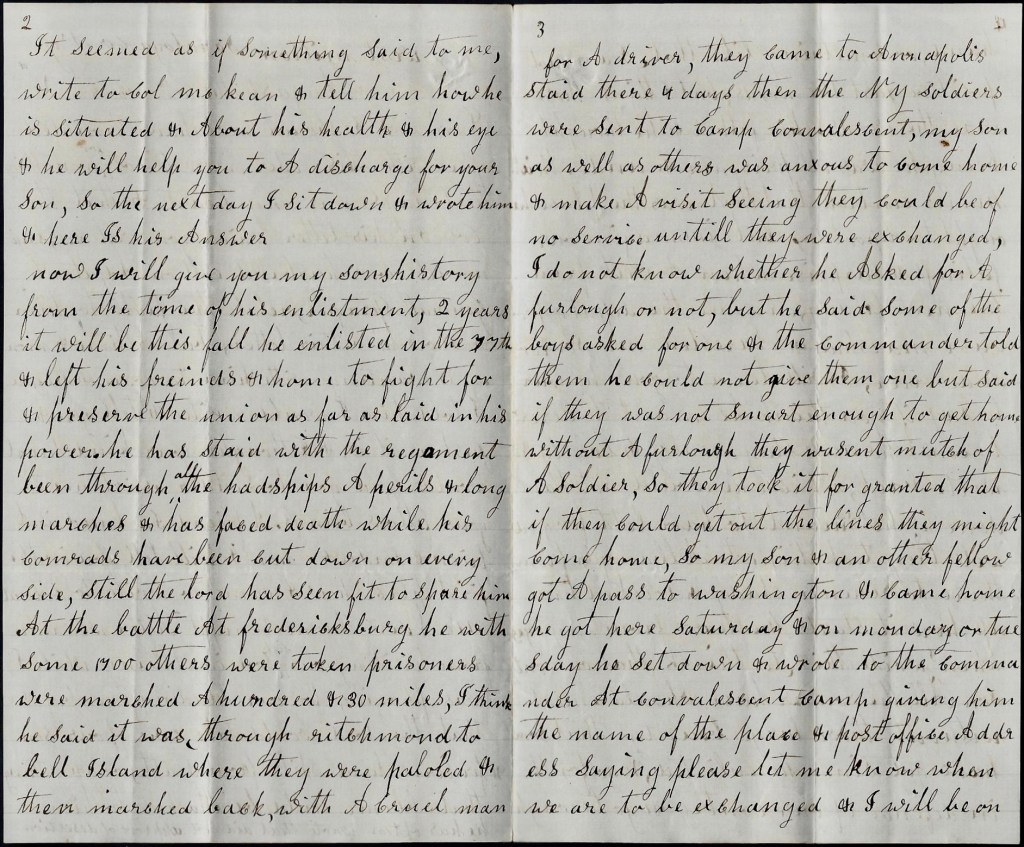 2
It seemed as if something said to me,
write to Col mc kean & tell him how he
is situated & About his health & his eye
& he will help you to A discharge for your
Son, So the next day I Sit down & wrote him
& here Is his Answer
now I will give you my sons history
from the time of his enlistment, 2 years
it will be this fall he enlisted in the 77th
& left his freinds & home to fight for
& preserve the union as far as laid in his
power. he has staid with the regament
been through all the hadships A perils & long
marches & has faced death while his
Comrads have been cut down on every
side, still the lord has seen fit to spare him
At the battle At fredericksburg he with
some 1700 others were taken prisoners
were marched A hundred & 30 miles, I think
he said it was, through ritchmond to
bell Island where they were paloled &
then marched back, with A Cruel man
3
for A driver, they Came to Annapolis
staid there 4 days then the N Y soldiers
were sent to Camp Convalescent, my son
as well as others was anxous to come home
& make A visit Seeing they Could be of
no service untill they were exchanged,
I do not know whether he Asked for A
furlough or not, but he said some of the
boys asked for one & the Commander told
them he could not give them one but said
if they was not smart enough to get home
without A furlough they wasent mutch of
A soldier, so they took it for granted that
if they could get out the lines they might
Come home, So my son & an other fellow
got A pass to washington & Came home
he got here Saturday & on monday or tue
sday he set down & wrote to the Comma
nder At Convalescent Camp giving him
the name of the place & post office Addr
ess Saying please let me know when
we are to be exchanged & I will be on